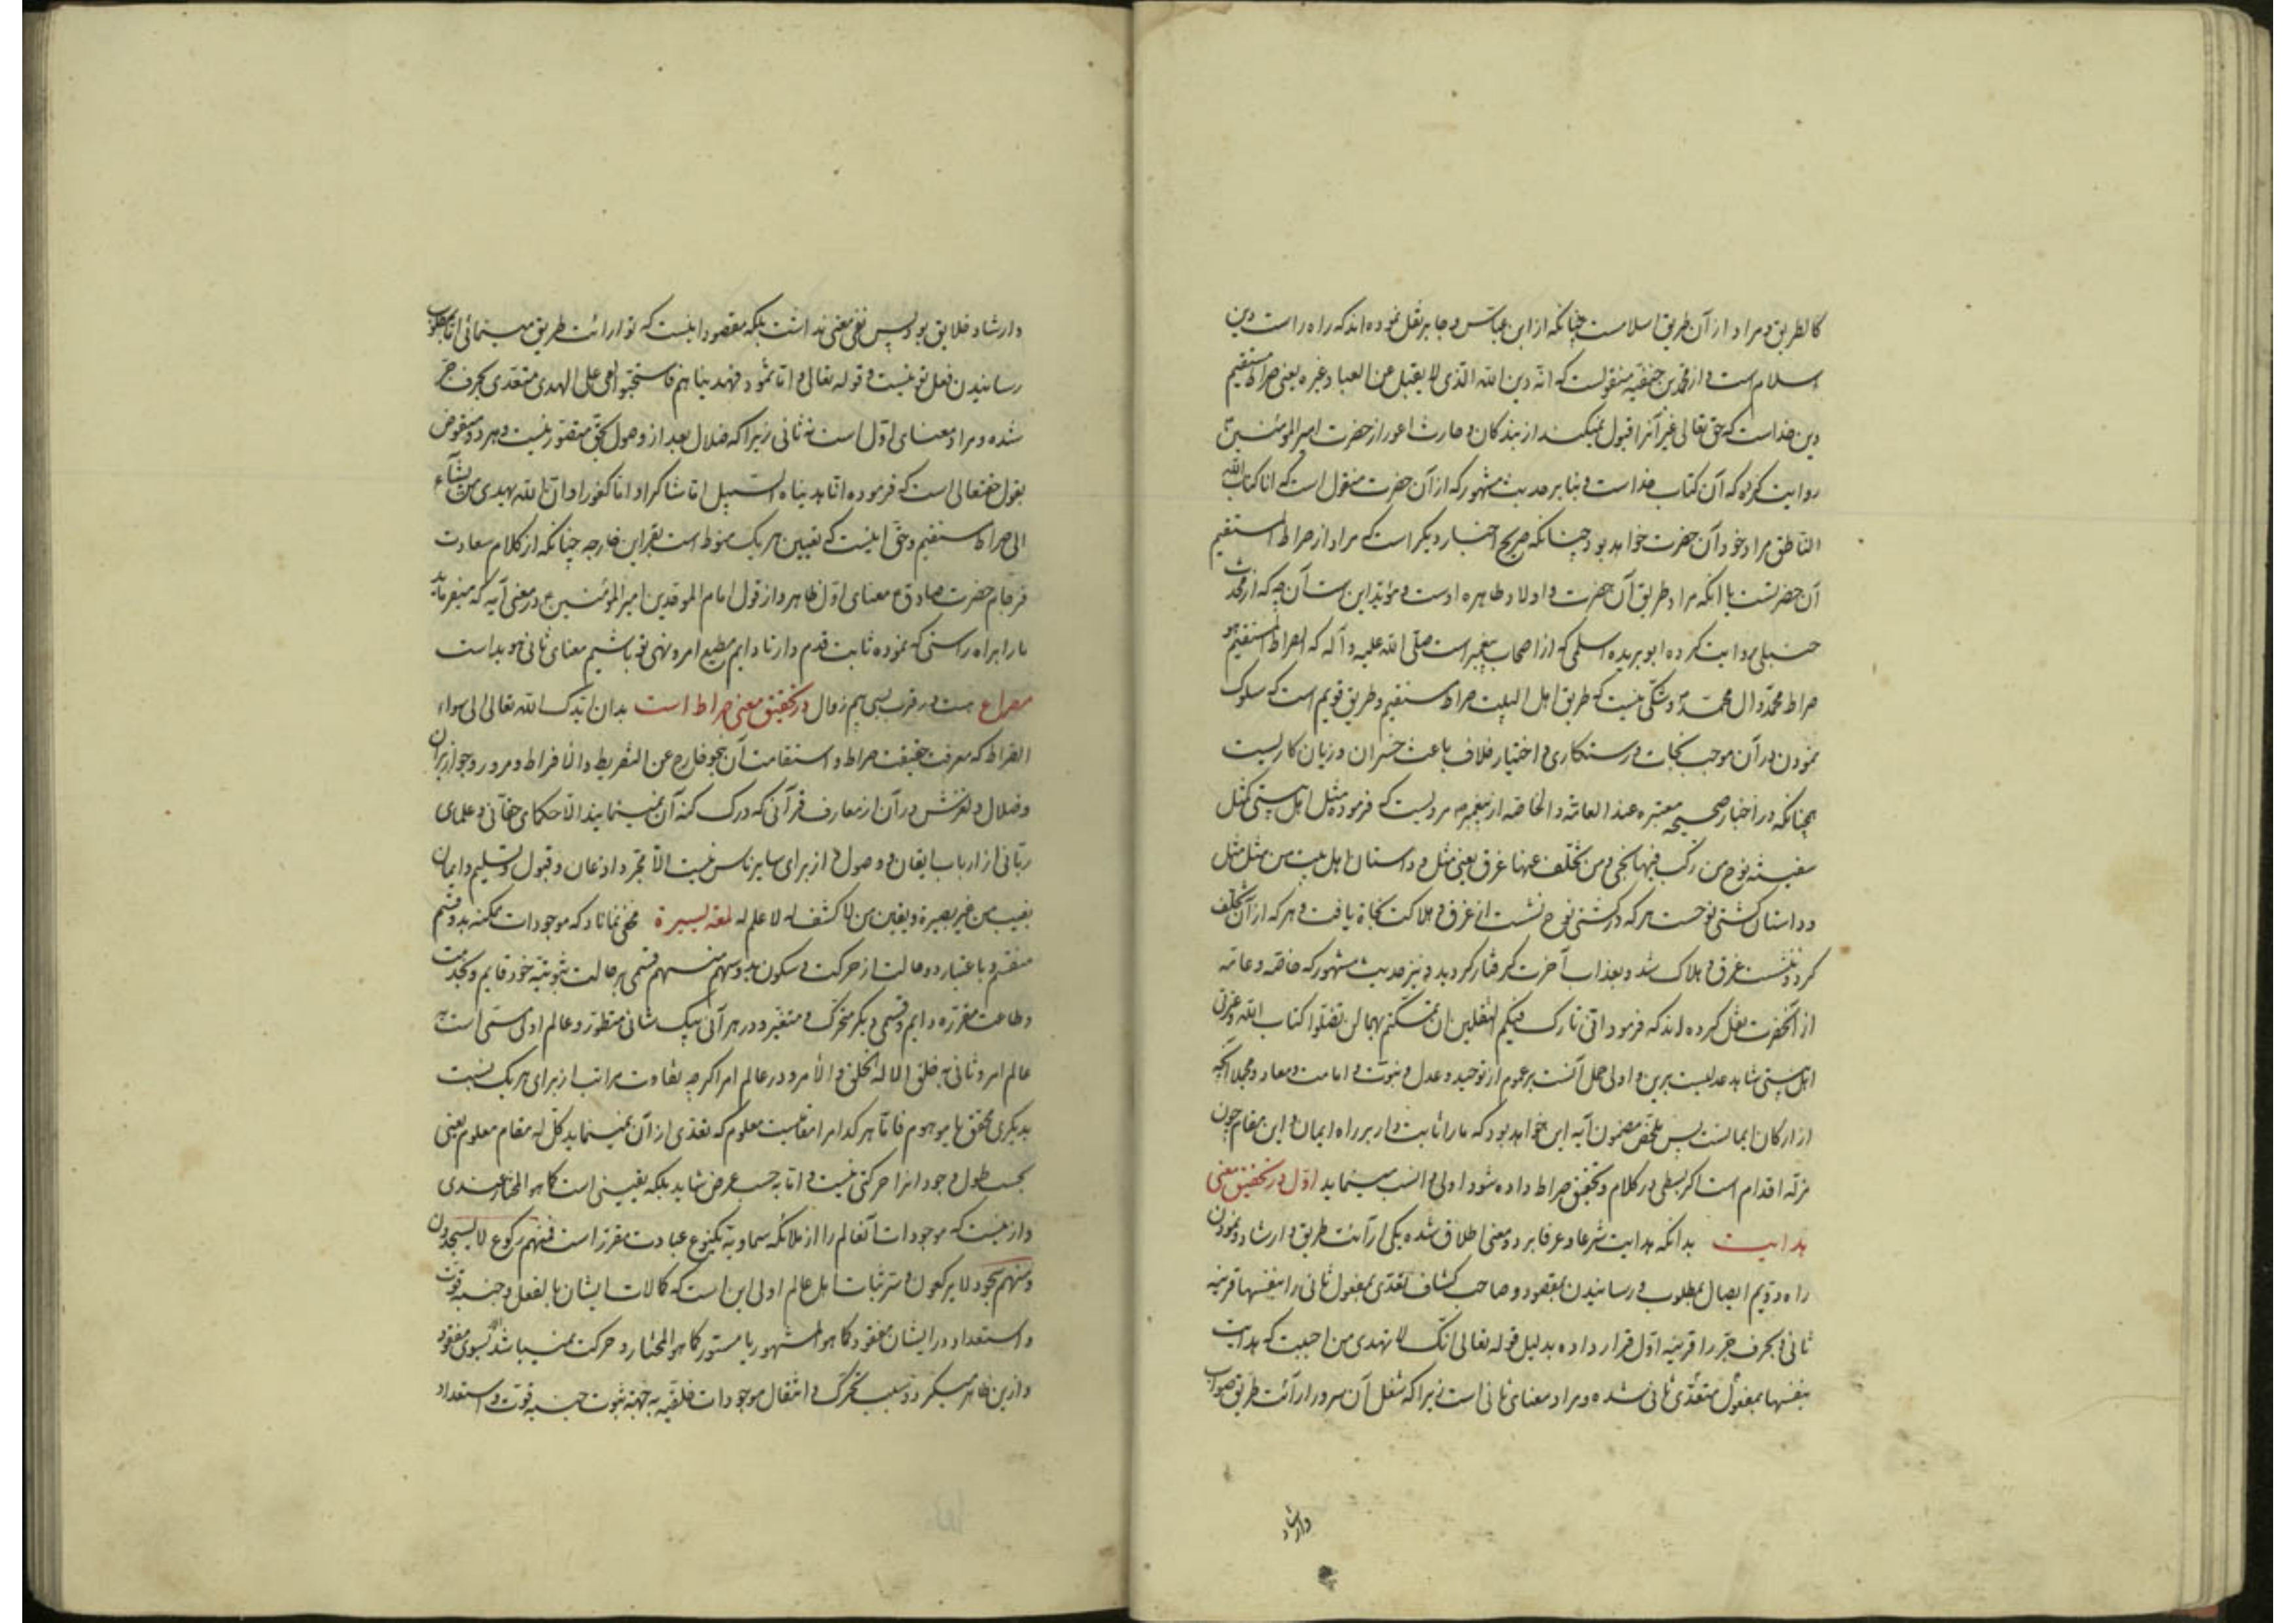 کالطریق و مراد از آن طریق اسلامست چنانکه از ابن عباس و جابر نقل نموده‌اند که راه راست دین
اسلام است و از محمد بن حنفیه منقولست که انّه دین الله الّذی لا یقبل عن العباد غیره یعنی صراط مستقیم
دین خداست که حق تعالی غیر آنرا قبول نمیکند از بندگان و حارث اعور از حضرت امیر المؤمنین
روایت کرده که آن کتاب خداست و بنابر حدیث مشهور که از آن حضرت منقول است که انا کتاب الله
الناطق مراد خود آن حضرت خواهد بود چنانکه صریح اخبار دیگر است که مراد از صراط المستقیم
آن حضرتست یا آنکه مراد طریق آن حضرت و اولاد طاهره اوست و مؤید این است آن چه که از محدث
حنبلی روایت کرده ابو بریده اسلمی که از اصحاب پیغمبر است صلّی الله علیه و آله که الصراط المستقیم هو
صراط محمّد و ال محمّد و شکی نیست که طریق اهل البیت صراط مستقیم و طریق قویم است که سلوک
نمودن در آن موجب نجات و رستکاری و اختیار خلاف باعث خسران و زیان کاریست
چنانکه در اخبار صحیحه معتبره عند العامّه و الخاصّه از پیغمبر مرویست که فرموده مثل اهل بیتی کمثل
سفینة نوح من رکب فیها نجی و من تخلّف عنها غرق یعنی مثل و داستان اهل بیت من مثل
و داستان کشتی نوحست هر که در کشتی نوح نشست از غرق و هلاکت نجاة یافت و هر که از آن تخلف
کرد و ننشست غرق و هلاک شد و بعذاب آخرت گرفتار گردید و نیز حدیث مشهور که خاصّه و عامّه
از آنحضرت نقل کرده‌اند که فرمود انّی تارک فیکم الثقلین ان تمسکتم بهما لن تضلّوا کتاب الله و عترتی
اهل بیتی شاهد عدلیست برین و اولی حمل آنست بر عموم از توحید و عدل و نبوّت و امامت و معاد و مجملا آنچه
از ارکان ایمانست پس ملخص مضمون آیه این خواهد بود که ما را ثابت دار بر راه ایمان و این مقام چون
مزلّه اقدام است اگر بسطی در کلام و تحقیق صراط داده شود اولی و انسب مینماید اوّل در تحقیق معنی
هدایت بدانکه هدایت شرعا و عرفا بر دو معنی اطلاق شده یکی ارآئت طریق و ارشاد و نمودن
راه و دویم ایصال بمطلوب و رسانیدن بمقصود و صاحب کشاف تعدّی بمفعول ثانی را بنفسها قرینه
ثانی و بحرف جرّ را قرینه اوّل قرار داده بدلیل قوله تعالی انّک لا تهدی من احببت که هدایت
بنفسها بمفعول متعدّی ثانی شده و مراد معنای ثانی است زیرا که شغل آن سرور ارآئت طریق صواب
وارشاد
وارشاد خلایق بود پس نفی معنی نداشت بلکه مقصود اینست که تو ارائت طریق مینمائی امّا بمطلوب
رسانیدن فعل تو نیست و قوله تعالی و امّا ثمود فهدیناهم فاستحبّوا العمی علی الهدی متعدّی بحرف جرّ
شده و مراد معنای اوّل است نه ثانی زیرا که ضلال بعد از وصول بحق متصوّر نیست و هر دو منقوض
بقول حقتعالی است که فرموده انّا هدیناه السبیل امّا شاکرا و امّا کفورا و انّ الله یهدی من یشآء
الی صراط مستقیم و حقّ اینست که تعیین هر یک منوط است بقراین خارجه چنانکه از کلام سعادت
فرجام حضرت صادق ع معنای اوّل ظاهر و از قول امام الموحّدین امیر المؤمنین ع در معنی آیه که میفرماید
ما را براه راستی که نموده ثابت قدم دار تا دایم مطیع امر و نهی تو باشیم معنای ثانی هویداست
مصراع هست در قرب بسی بیم زوال در تحقیق معنی صراط است بدان ایّدک الله تعالی الی سواء
الصّراط که معرفت حقیقت صراط و استقامت آن بنحو خارج عن التفریط و الافراط و مرور و جواز بر آن
و ضلال و لغزش در آن از معارف قرآنی که درک کنه آن نمینمایند الّا حکمای حقّانی و علمای
ربّانی از ارباب ایقان و وصول و از برای سایر ناس نیست الّا مجرّد اذعان و قبول و تسلیم و ایمان
بغیب من غیر بصیرة و یقین من لا کشف له لا علم له لمعة یسیرة مخفی نماناد که موجودات ممکنه بدو قسم
منقسم و باعتبار دو حالت از حرکت و سکون بدو سهم منسهم قسمی بر حالت ثبوتیّه خود قایم و بخدمت
و طاعت مقرّره دایم و قسمی دیگر متحرّک و متغیّر و در هر آنی بیک شانی متطوّر و عالم اولی مسمّی است به
عالم امر و ثانی به خلق الا له الخلق و الأمر و در عالم امر اگرچه تفاوت مراتب از برای هر یک نسبت
بدیگری محقق یا موهوم فامّا هر کدام را مقامیست معلوم که تعدّی از آن نمینماید کلّ له مقام معلوم یعنی
بحسب طول وجود او را حرکتی نیست و امّا به حسب عرض شاید بلکه یقینی است کما هو المختار عندی
و ازینست که موجودات آنعالم را از ملائکه سماویّه یکنوع عبادت مقرّر است فمنهم رکوع لا یسجدون
و منهم سجود لا یرکعون و سرّ ثبات اهل عالم اولی این است که کمالات ایشان بالفعل و جنبه قوّت
و استعداد در ایشان مفقود کما هو المشهور یا مستور کما هو المختار و حرکت نمیباشد الا بسوی مفقود
و ازین ظاهر میگردد سبب تحرّک و انتقال موجودات خلقیّه به جهة ثبوت جنبه قوّت و استعداد